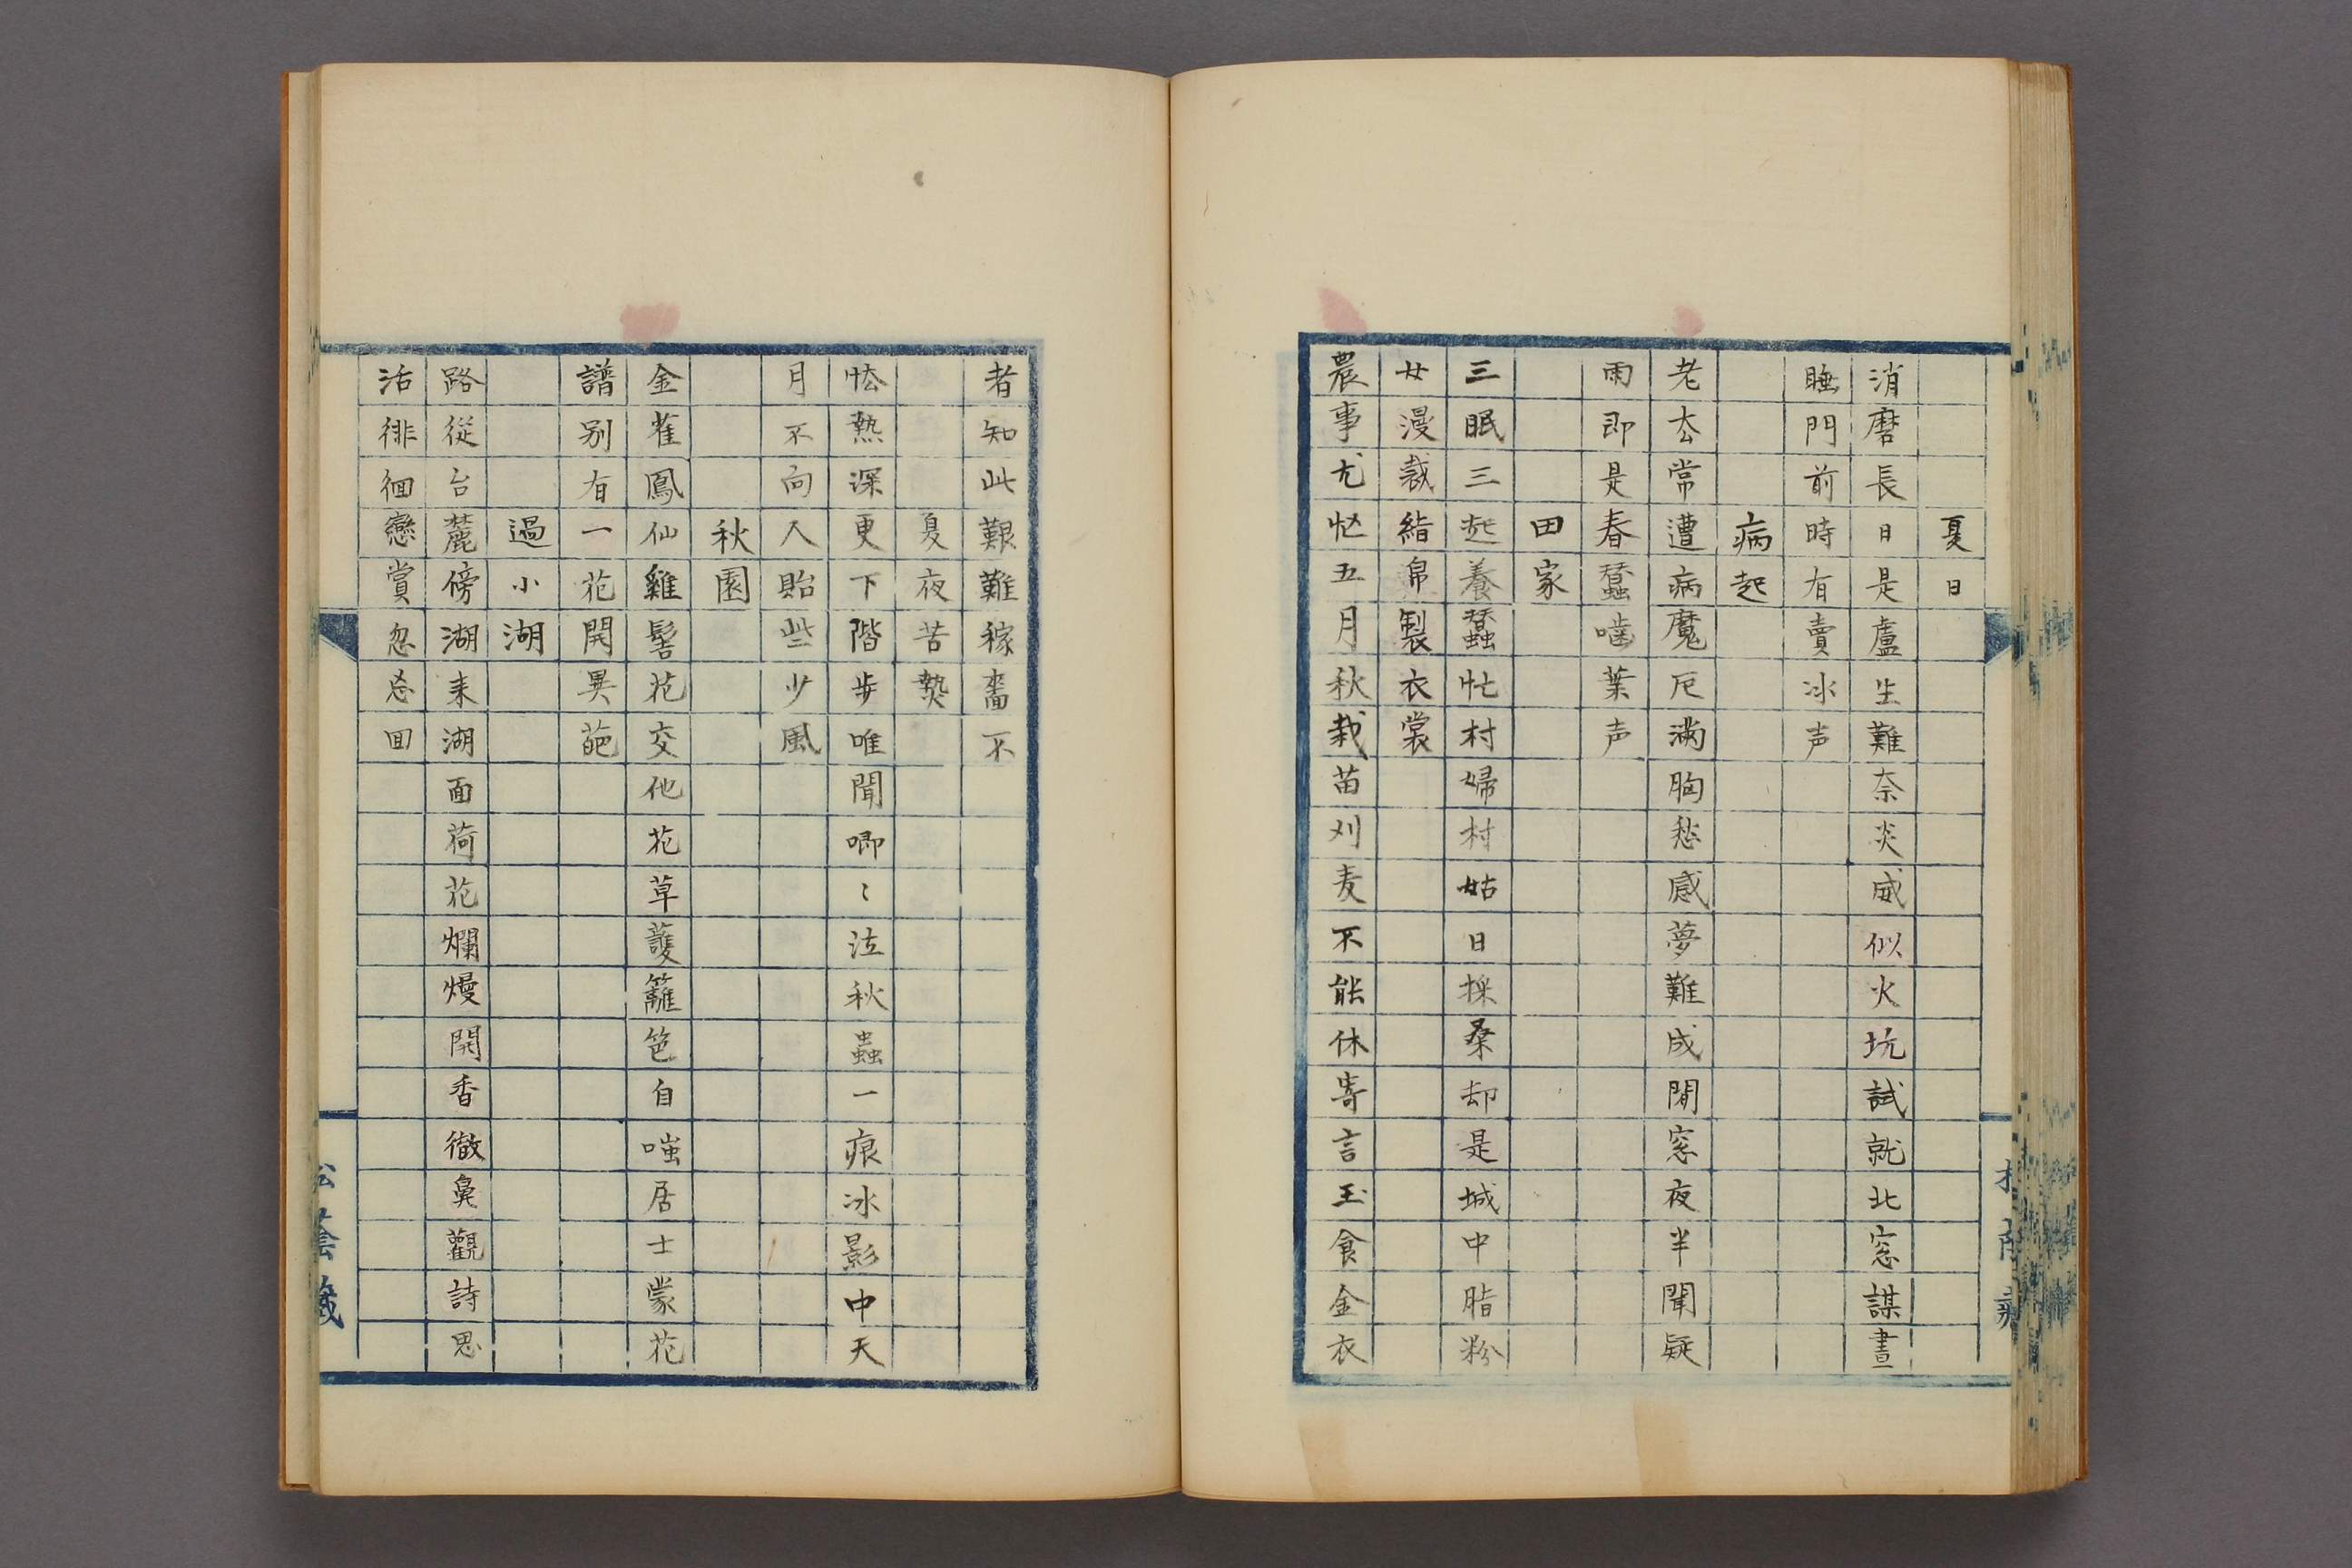 夏日
消磨長日是盧生難奈炎威似火坑試就北窓謀晝
睡門前時有賣冰声
病起
老去常遭病魔厄満胸愁感夢難成閑窓夜半聞疑
雨即是春蚕噛葉声
田家
三眠三起養蚕忙村婦村姑日採桑却是城中脂粉
女漫裁綃帛製衣裳
農事尤忙五月秋栽苗刈麦不能休寄言玉食金衣
者知此艱難稼嗇不
夏夜苦熱
怯熱深更下階步唯聞喞〻泣秋蟲一痕冰影中天
月不向人貽些少風
秋園
金雀鳳仙雞髻花交他花草護籬笆自嗤居士蒙花
譜別有一花開異葩
過小湖
路從台麓傍湖来湖面荷花爛熳開香徹鼻觀詩思
活徘徊戀賞忽忘回